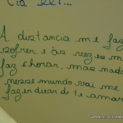 A distancia me faz
sofrer e às vezes me
faz chorar, mas nada
nesse mundo vai me
fazer deixar de te amar